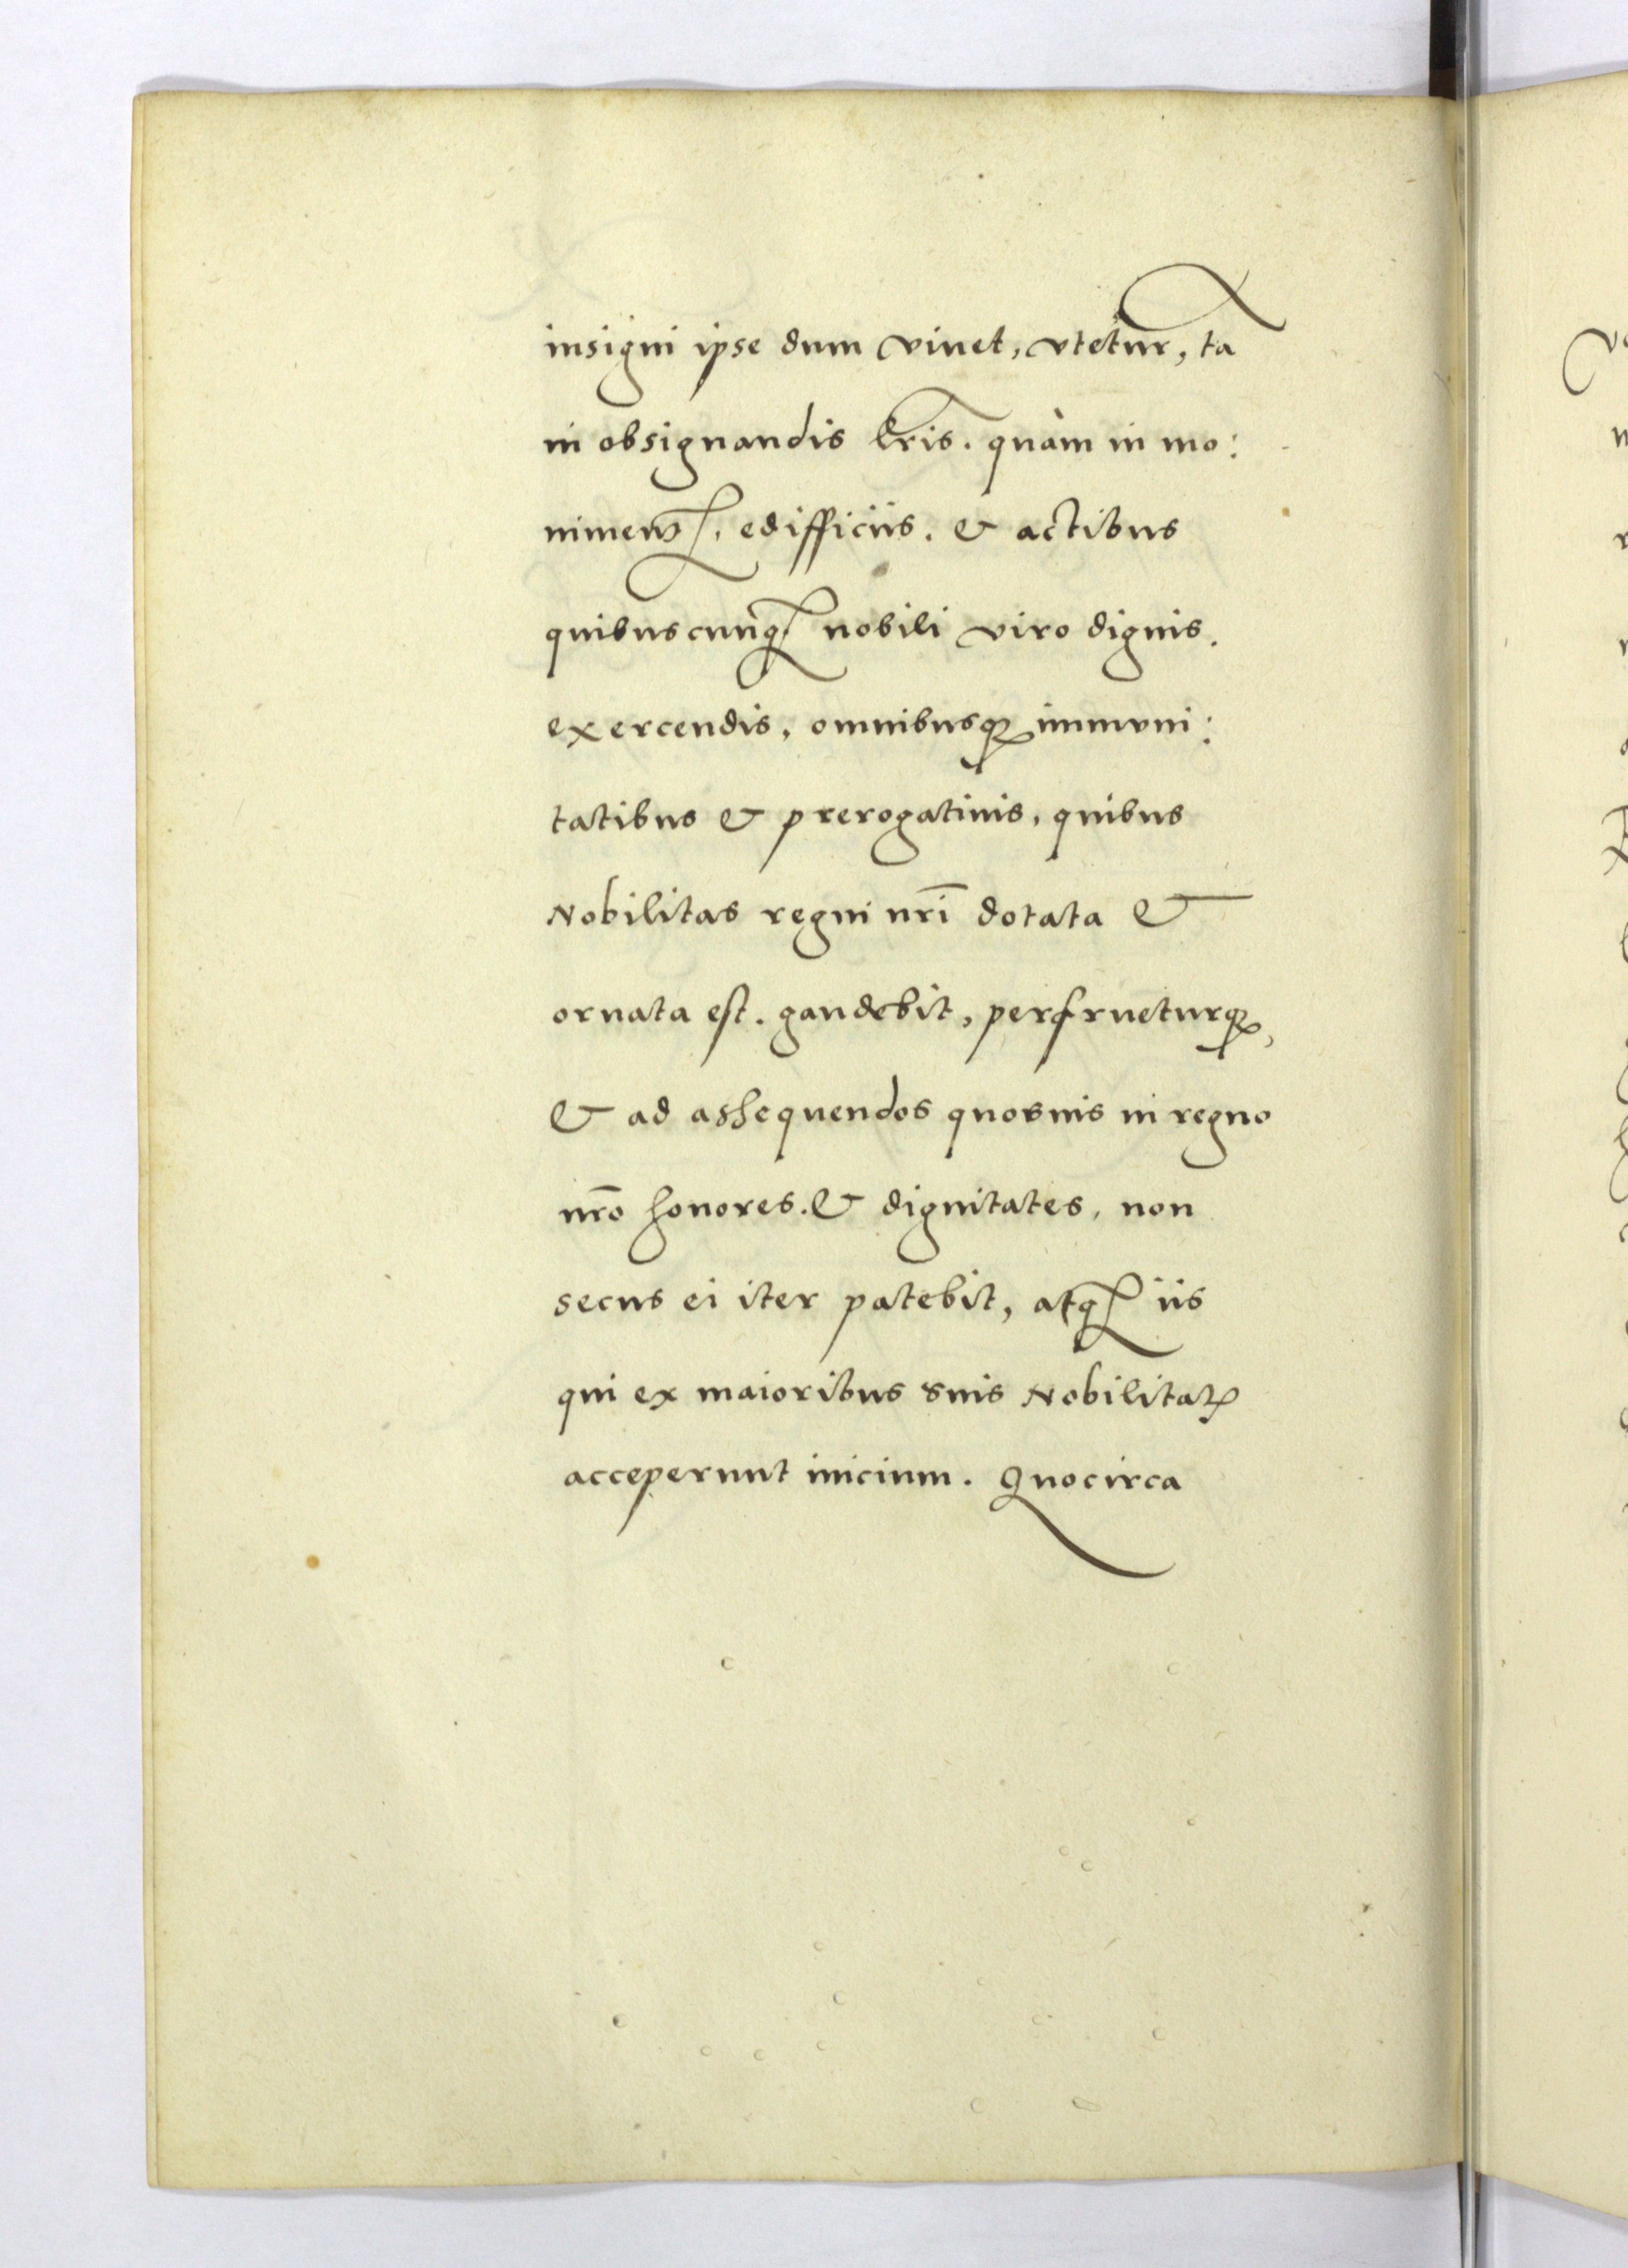 insigni ipse dum viuet, vtetur, tã
in obsignandis lr̃is. quàm in mo:
nimentꝭ, edifficiis. & actibus
quibuscunqꝫ nobili viro dignis.
exercendis, omnibusqꝫ immvni:
tatibus & prerogatiuis, quibus
Nobilitas regni nr̃i dotata &
ornata est. gaudebit, perfrueturqꝫ,
& ad assequendos quosuis in regno
nr̃o honores. & dignitates, non
secus ei iter patebit, atqꝫ iis
qui ex maioribus suis Nobilitatꝭ
acceperunt inicium. Quocirca